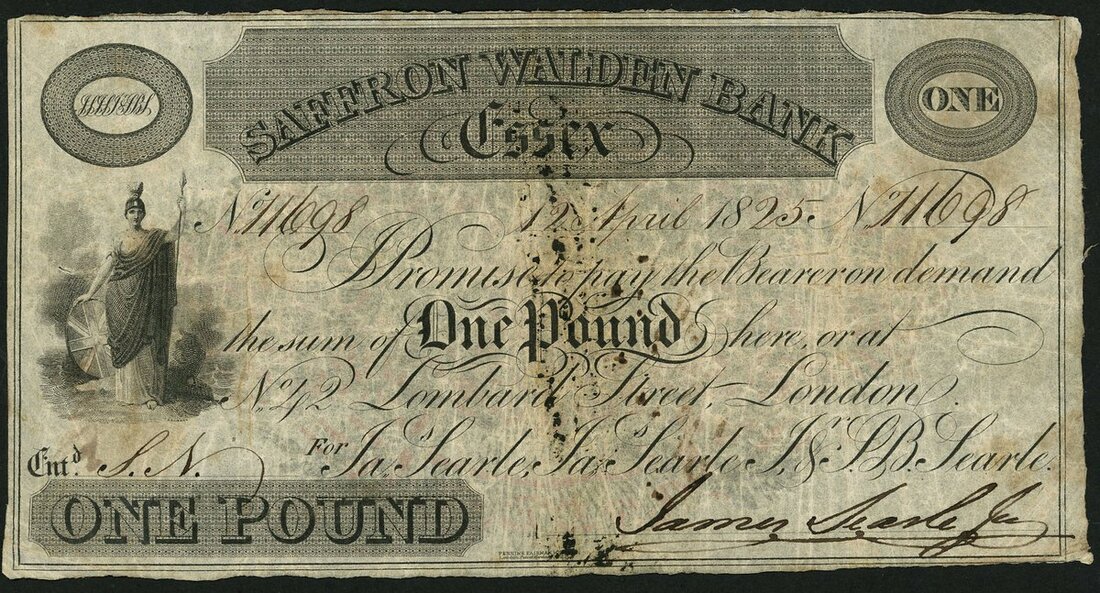 SAFFRON WALDEN BANK
Essex
ONE
No. 71698 12 April 1825 No. 71698
I Promise to pay the Bearer on demand
the sum of One Pound here, or at
No. 42 Lombard Street, London.
Entd. S.N. For Jas. Searle, Jas. Searle Jr. & S.B. Searle.
ONE POUND
James Searle Jr
PERKINS